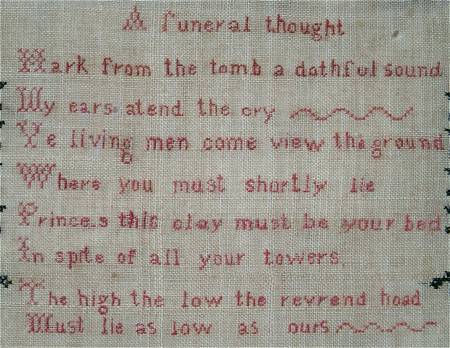 A funeral thought
Hark from the tomb a dothful sound
My ears atend the cry
Ye living men come view the ground
Where you must shortly lie
Princes this clay must be your bed
In spite of all your towers.
The high the low the revrend head
Must lie as low as ours